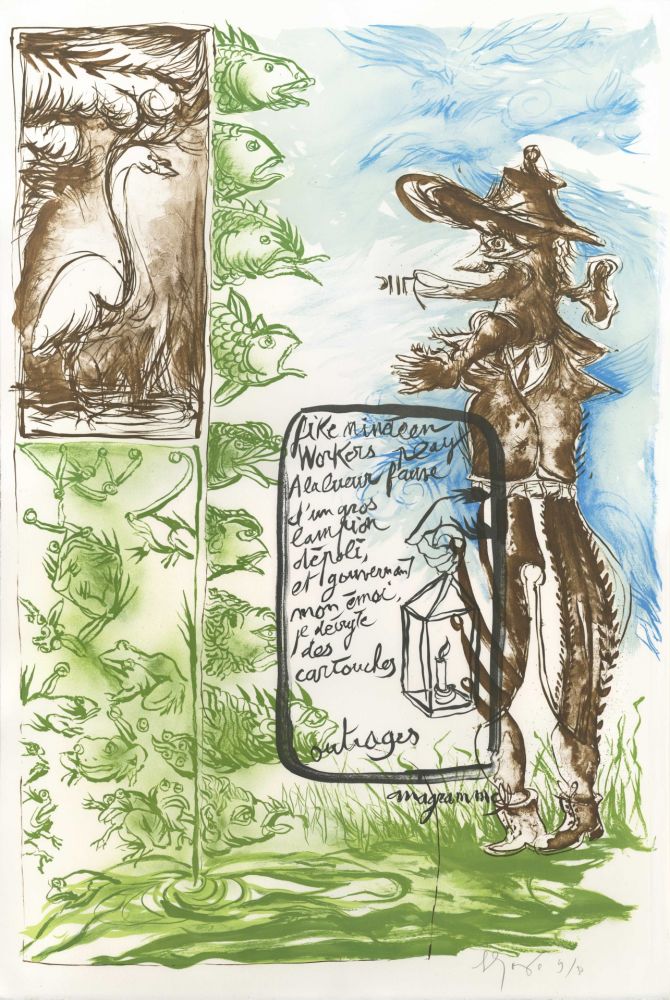 like minacen
Workers play
A la lueur fauve
d'un gros
lampion
dépoli,
et gouvernant
mon émoi,
je dévoyte
des
cartouches
outrages
anagramme